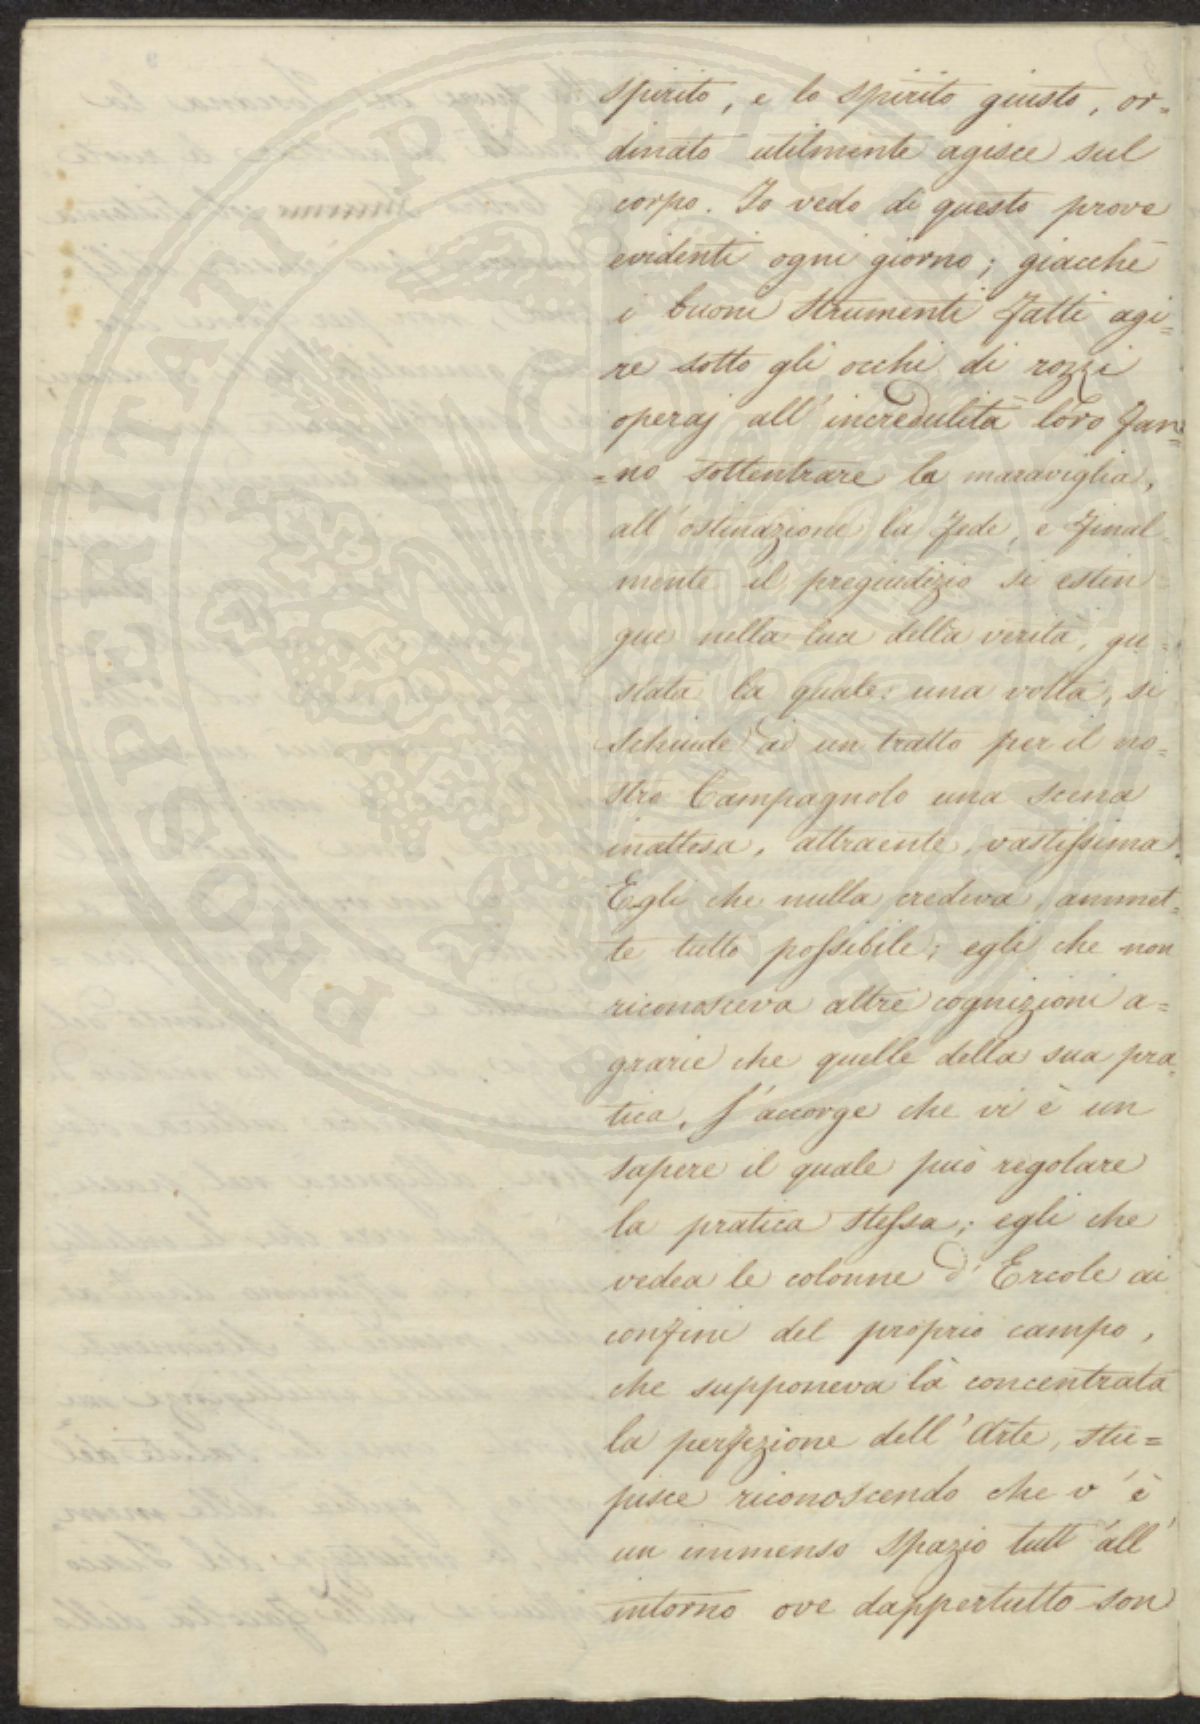 spirito, e lo spirito giusto, or=
dinato utilmente agisce sul
corpo. Io vedo di questo prove
evidenti ogni giorno; giacchè
i buoni strumenti fatti agi=
re sotto gli occhi di rozzi
operaj all'incredulità loro fan=
=no sottentrare la maraviglia,
all'ostinazione la fede, e final
mente il pregiudizio si estin
gue nella luce della verità, gu=
stata la quale una volta, si
schiude ad un tratto per il no=
stro Campagnolo una scena
inattesa, attraente, vastissima.
Egli che nulla credeva, ammet=
te tutto possibile; egli che non
riconosceva altre cognizioni a=
grarie che quelle della sua pra=
tica, s'accorge che vi è un
sapere il quale può regolare
la pratica stessa; egli che
vedea le colonne d'Ercole ai
confini del proprio campo,
che supponeva là concentrata
la perfezione dell'Arte, stu=
pisce riconoscendo che v'è
un immenso spazio tutt'all'
intorno ove dappertutto son
PROSPERITATI PUBLICAE